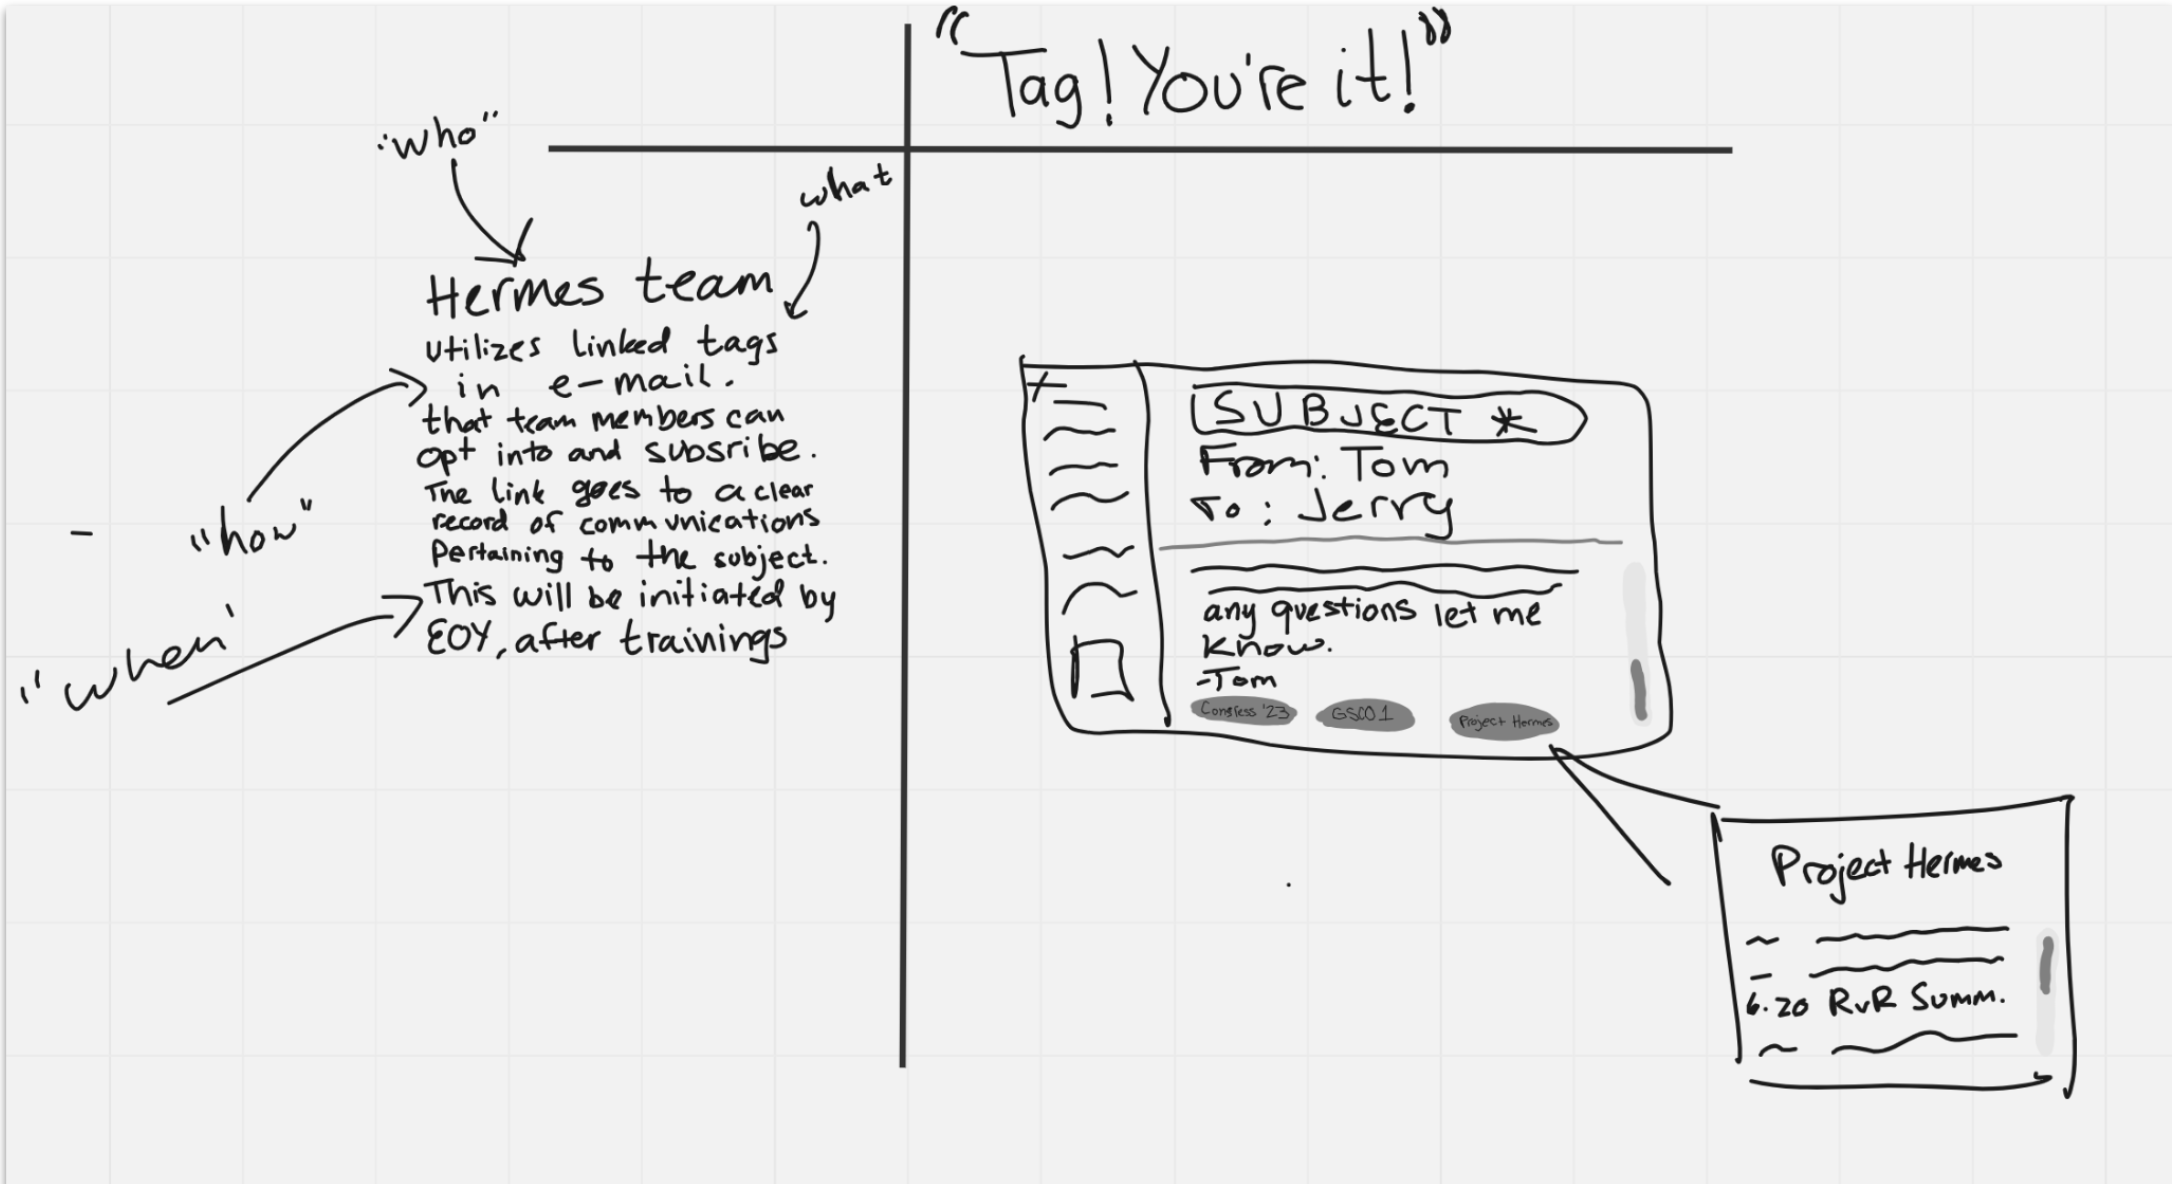 "Tag! You're it!"
"who"
what
Hermes team
utilizes linked tags
in e-mail.
that team members can
opt into and subsribe.
The link goes to a clear
record of communications
Pertaining to the subject.
This will be initiated by
EOY, after trainings
"how"
"when"
SUBJECT *
From: Tom
To: Jerry
any questions let me
Know.
-Tom
Congress '23
GSCO1
Project Hermes
Project Hermes
6.20 RvR Summ.